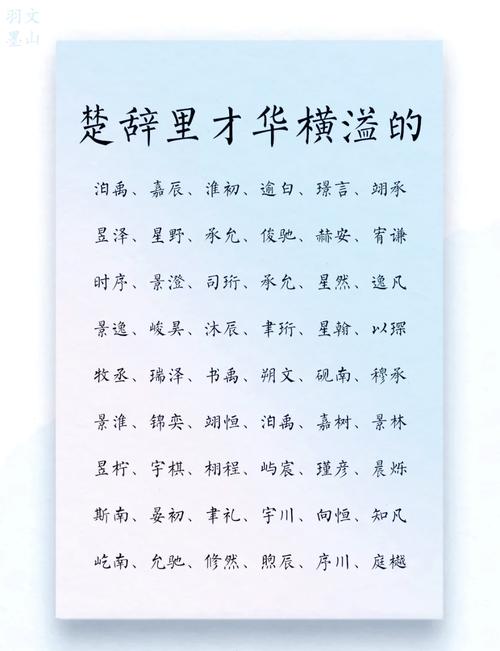 羽文
墨山
楚辞里才华横溢的
泊禹、嘉辰、淮初、逾白、璟言、翊承
昱泽、星野、承允、俊驰、赫安、宥谦
时序、景澄、司珩、承允、星然、逸凡
景逸、峻昊、沐辰、聿珩、星翰、以琛
牧丞、瑞泽、书禹、朔文、砚南、穆承
景淮、锦奕、翊恒、泊禹、嘉树、景林
昱柠、宇棋、栩程、屿宸、瑾彦、晨烁
斯南、晏初、聿礼、宇川、向恒、知凡
屹南、允驰、修然、煦辰、序川、庭樾